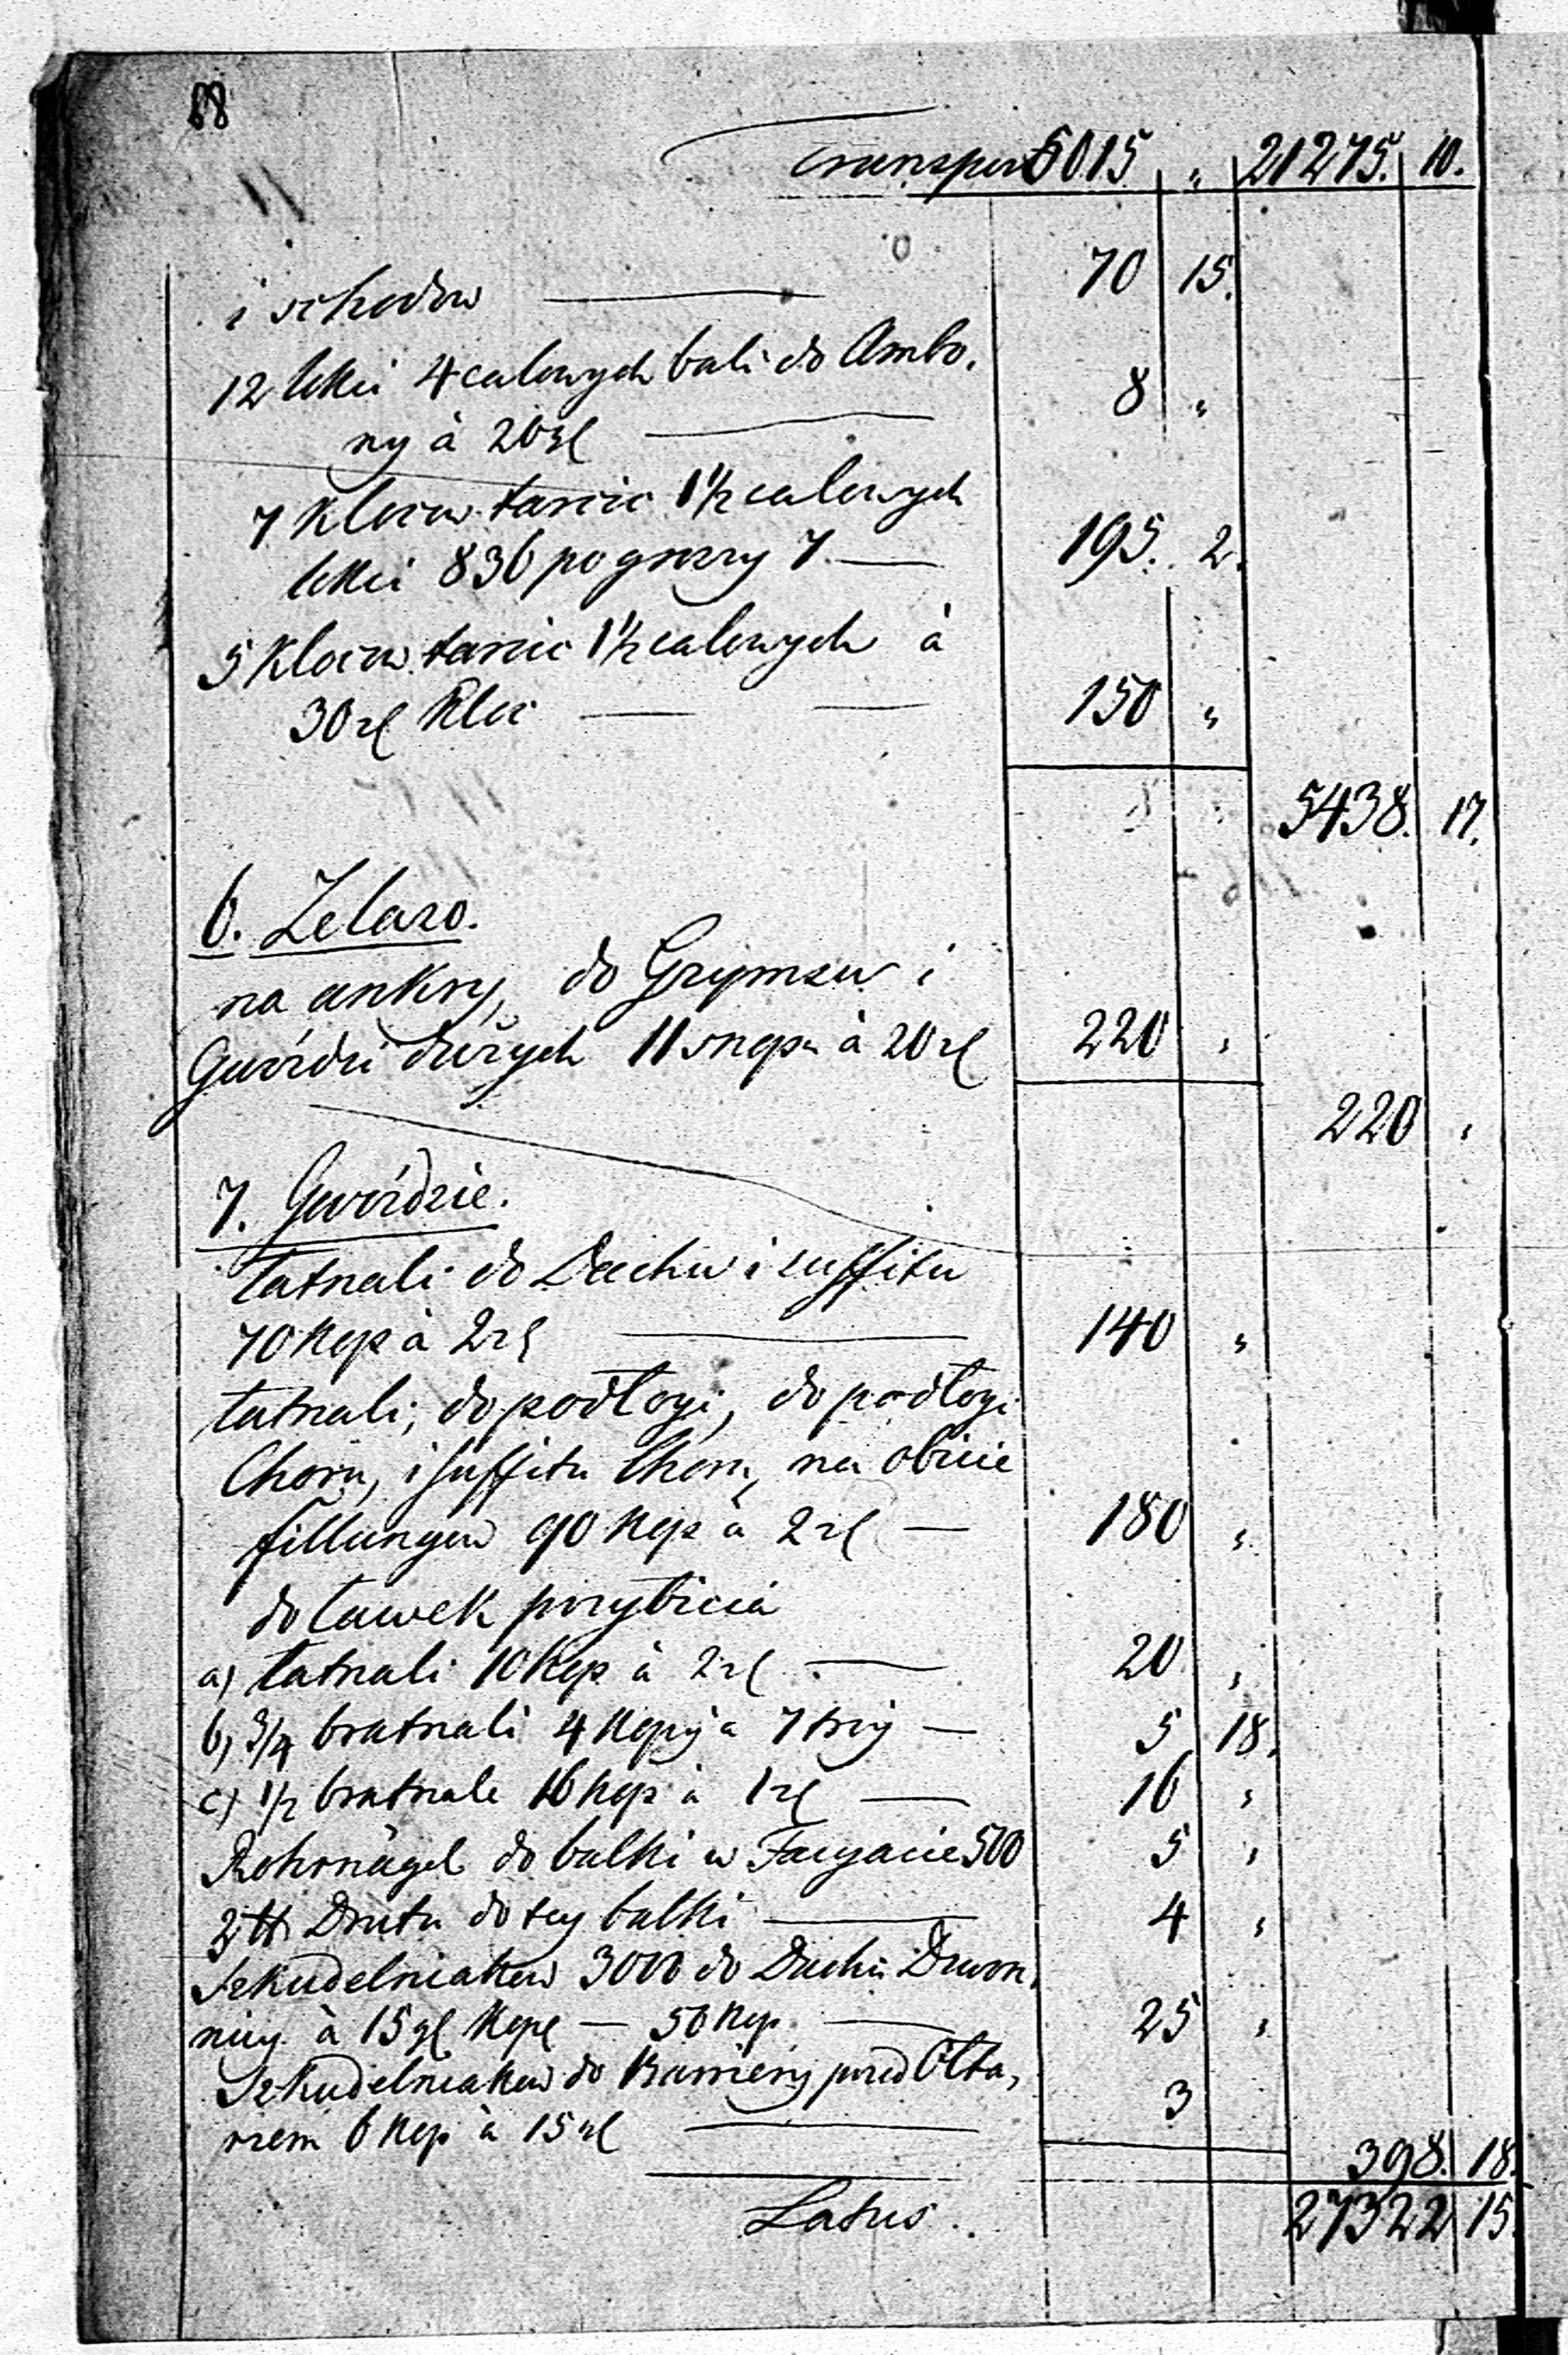 68
Transport 5015 „ 21275. 10.
i schodow — 70 15.
12 lokci 4 calowych bali do Ambo,
ny à 20 zl — 8 „
7 Klocow tarcic 1½ calowych
lokci 836 po groszy 7 — 195. 2.
5 Klocow tarcic 1½ calowych à
30 zl Kloc — — 150 „
5438. 17.
6. Zelazo.
na ankry, do Grymsu i
Gwoździ dużych 11 à 20 zl 220 „
220 „
7. Gwoździe.
łatnali do Dachu i suffitu
70 kop à 2 zl — 140 „
łatnali, do podłogi, do podłogi
Choru, i suffitu Choru, na obicie
fillungow 90 kop à 2 zl — 180 „
do ławek przybicia
a) łatnali 10 kop à 2 zl — 20 „
b) 3/4 bratnali 4 kopy a 7 — 5 18.
c) 1/2 bratnale 16 kop à 1 zl — 16 „
Rohrnägel do balki w Facyacie 500 5 „
Drutu do tey balki — 4 „
Szkudelniakow 3000 do Dachu Dzwon,
nicy à 15 gl kopę — 50 kop. — 25 „
Szkudelniakow do przed Ołta,
rzem 6 kop à 15 gl — 3
398. 18.
Latus .. 27322 15.